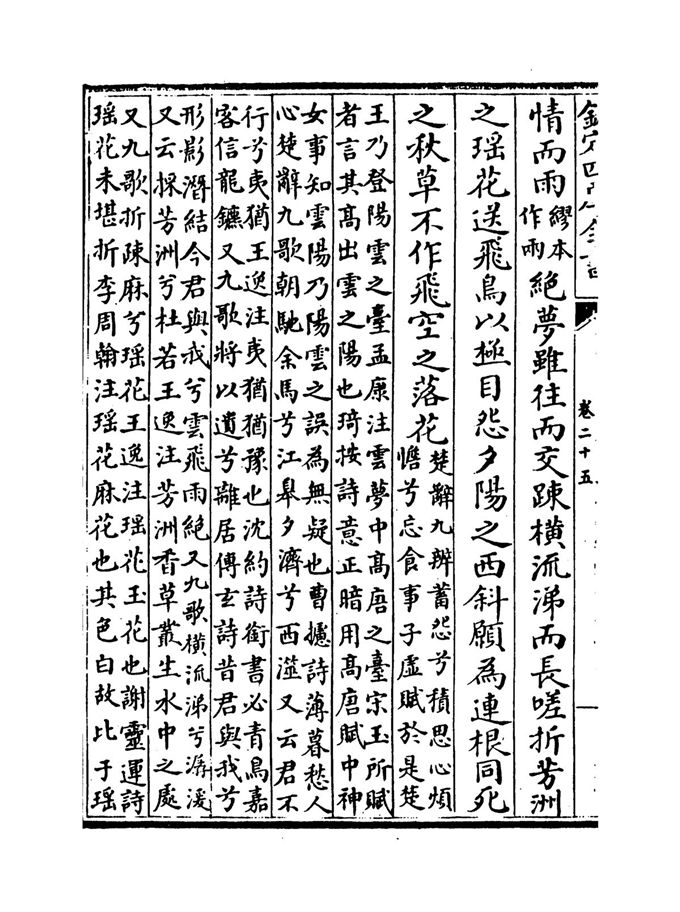 欽定四庫全書
卷二十五
情而雨繆本作雨絶夢雖往而交踈横流涕而長嗟折芳洲
之瑶花送飛鳥以極目怨夕陽之西斜願為連根同死
之秋草不作飛空之落花
楚辭九辨蓄怨兮積思心煩
憺兮忘食事子虛賦於是楚
王乃登陽雲之臺孟康注雲夢中髙唐之臺宋玉所賦
者言其髙出雲之陽也琦按詩意正暗用髙唐賦中神
女事知雲陽乃陽雲之誤為無疑也曹攄詩薄暮愁人
心楚辭九歌朝馳余馬兮江皋夕濟兮西澨又云君不
行兮夷猶王逸注夷猶猶豫也沈約詩銜書必青鳥嘉
客信龍鑣又九歌將以遺兮離居傅玄詩昔君與我兮
形影潛結今君與我兮雲飛雨絶又九歌横流涕兮潺湲
又云採芳洲兮杜若王逸注芳洲香草叢生水中之處
又九歌折疎麻兮瑶花王逸注瑶花玉花也謝靈運詩
瑶花未堪折李周翰注瑶花麻花也其色白故比于瑶